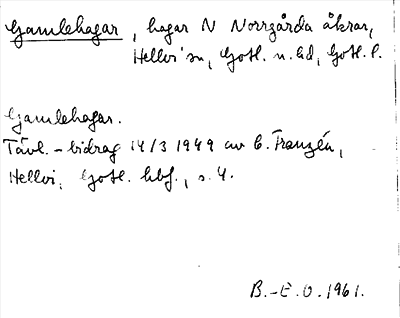 Gamlehagar, hagar N Norrgårda åkrar,
Hellvi sn, Gotl. n. hd, Gotl. l.
Gamlehagar.
Tävl.-bidrag 14/3 1949 av C. Franzén,
Hellvi, Gotl. hbf., s. 4.
B.-E. O. 1961.